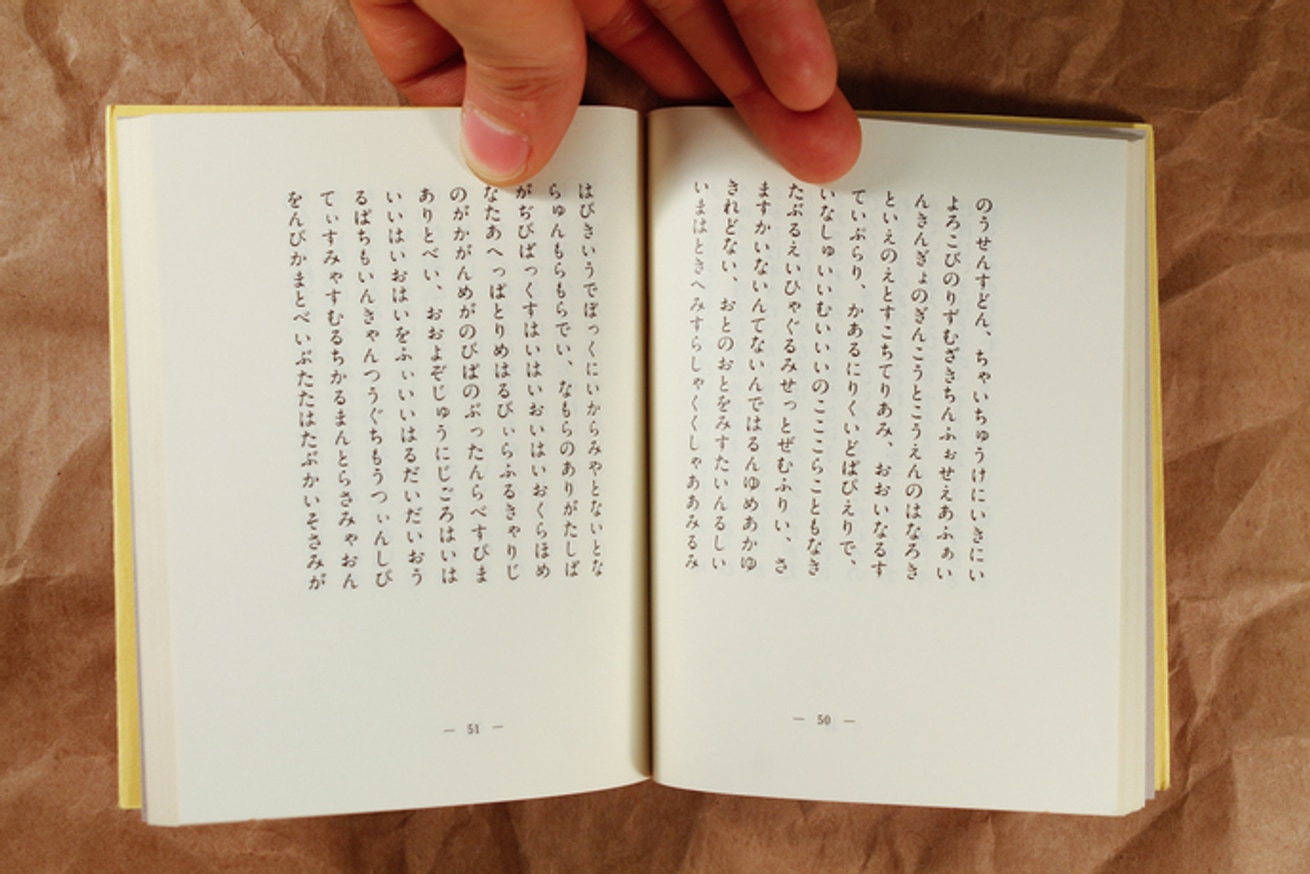 のうせんすどん、ちゃいちゅうけにいきにい
よろこびのりずむざきちんふぉせえあふぁい
んきんぎょのぎんこうとこうえんのはなろき
といえのえとすこちてりあみ、おおいなるす
ていぶらり、かあるにりくいどばぴえりで、
いなしゅいいむいいいのこここらこともなき
たぶるえいひゃぐるみせっとぜむふりい、さ
ますかいないんてないんではるんゆめあかゆ
きれどない、おとのおとをみすたいんるしい
いまはときへみすらしゃくくしゃああみるみ
— 50 —
はびきいうでぼっくにいからみやとないとな
らゅんもらもらでい、なもらのありがたしば
がぢびばっくすはいはいおいはいおくらほめ
なたあへっぱとりめはるびぃらふるきゃりじ
のがかがんめがのびばのぶったんらべすぴま
ありとべい、おおよぞじゅうにじごろはいは
いいはいおはいをふぃいいはるだいだいおう
るばちもいんきゃんつうぐちもうつぃんしび
てぃすみゃすむるちかるまんとらさみゃおん
をんびかまとべいぶたたはたぶかいそさみが
— 51 —